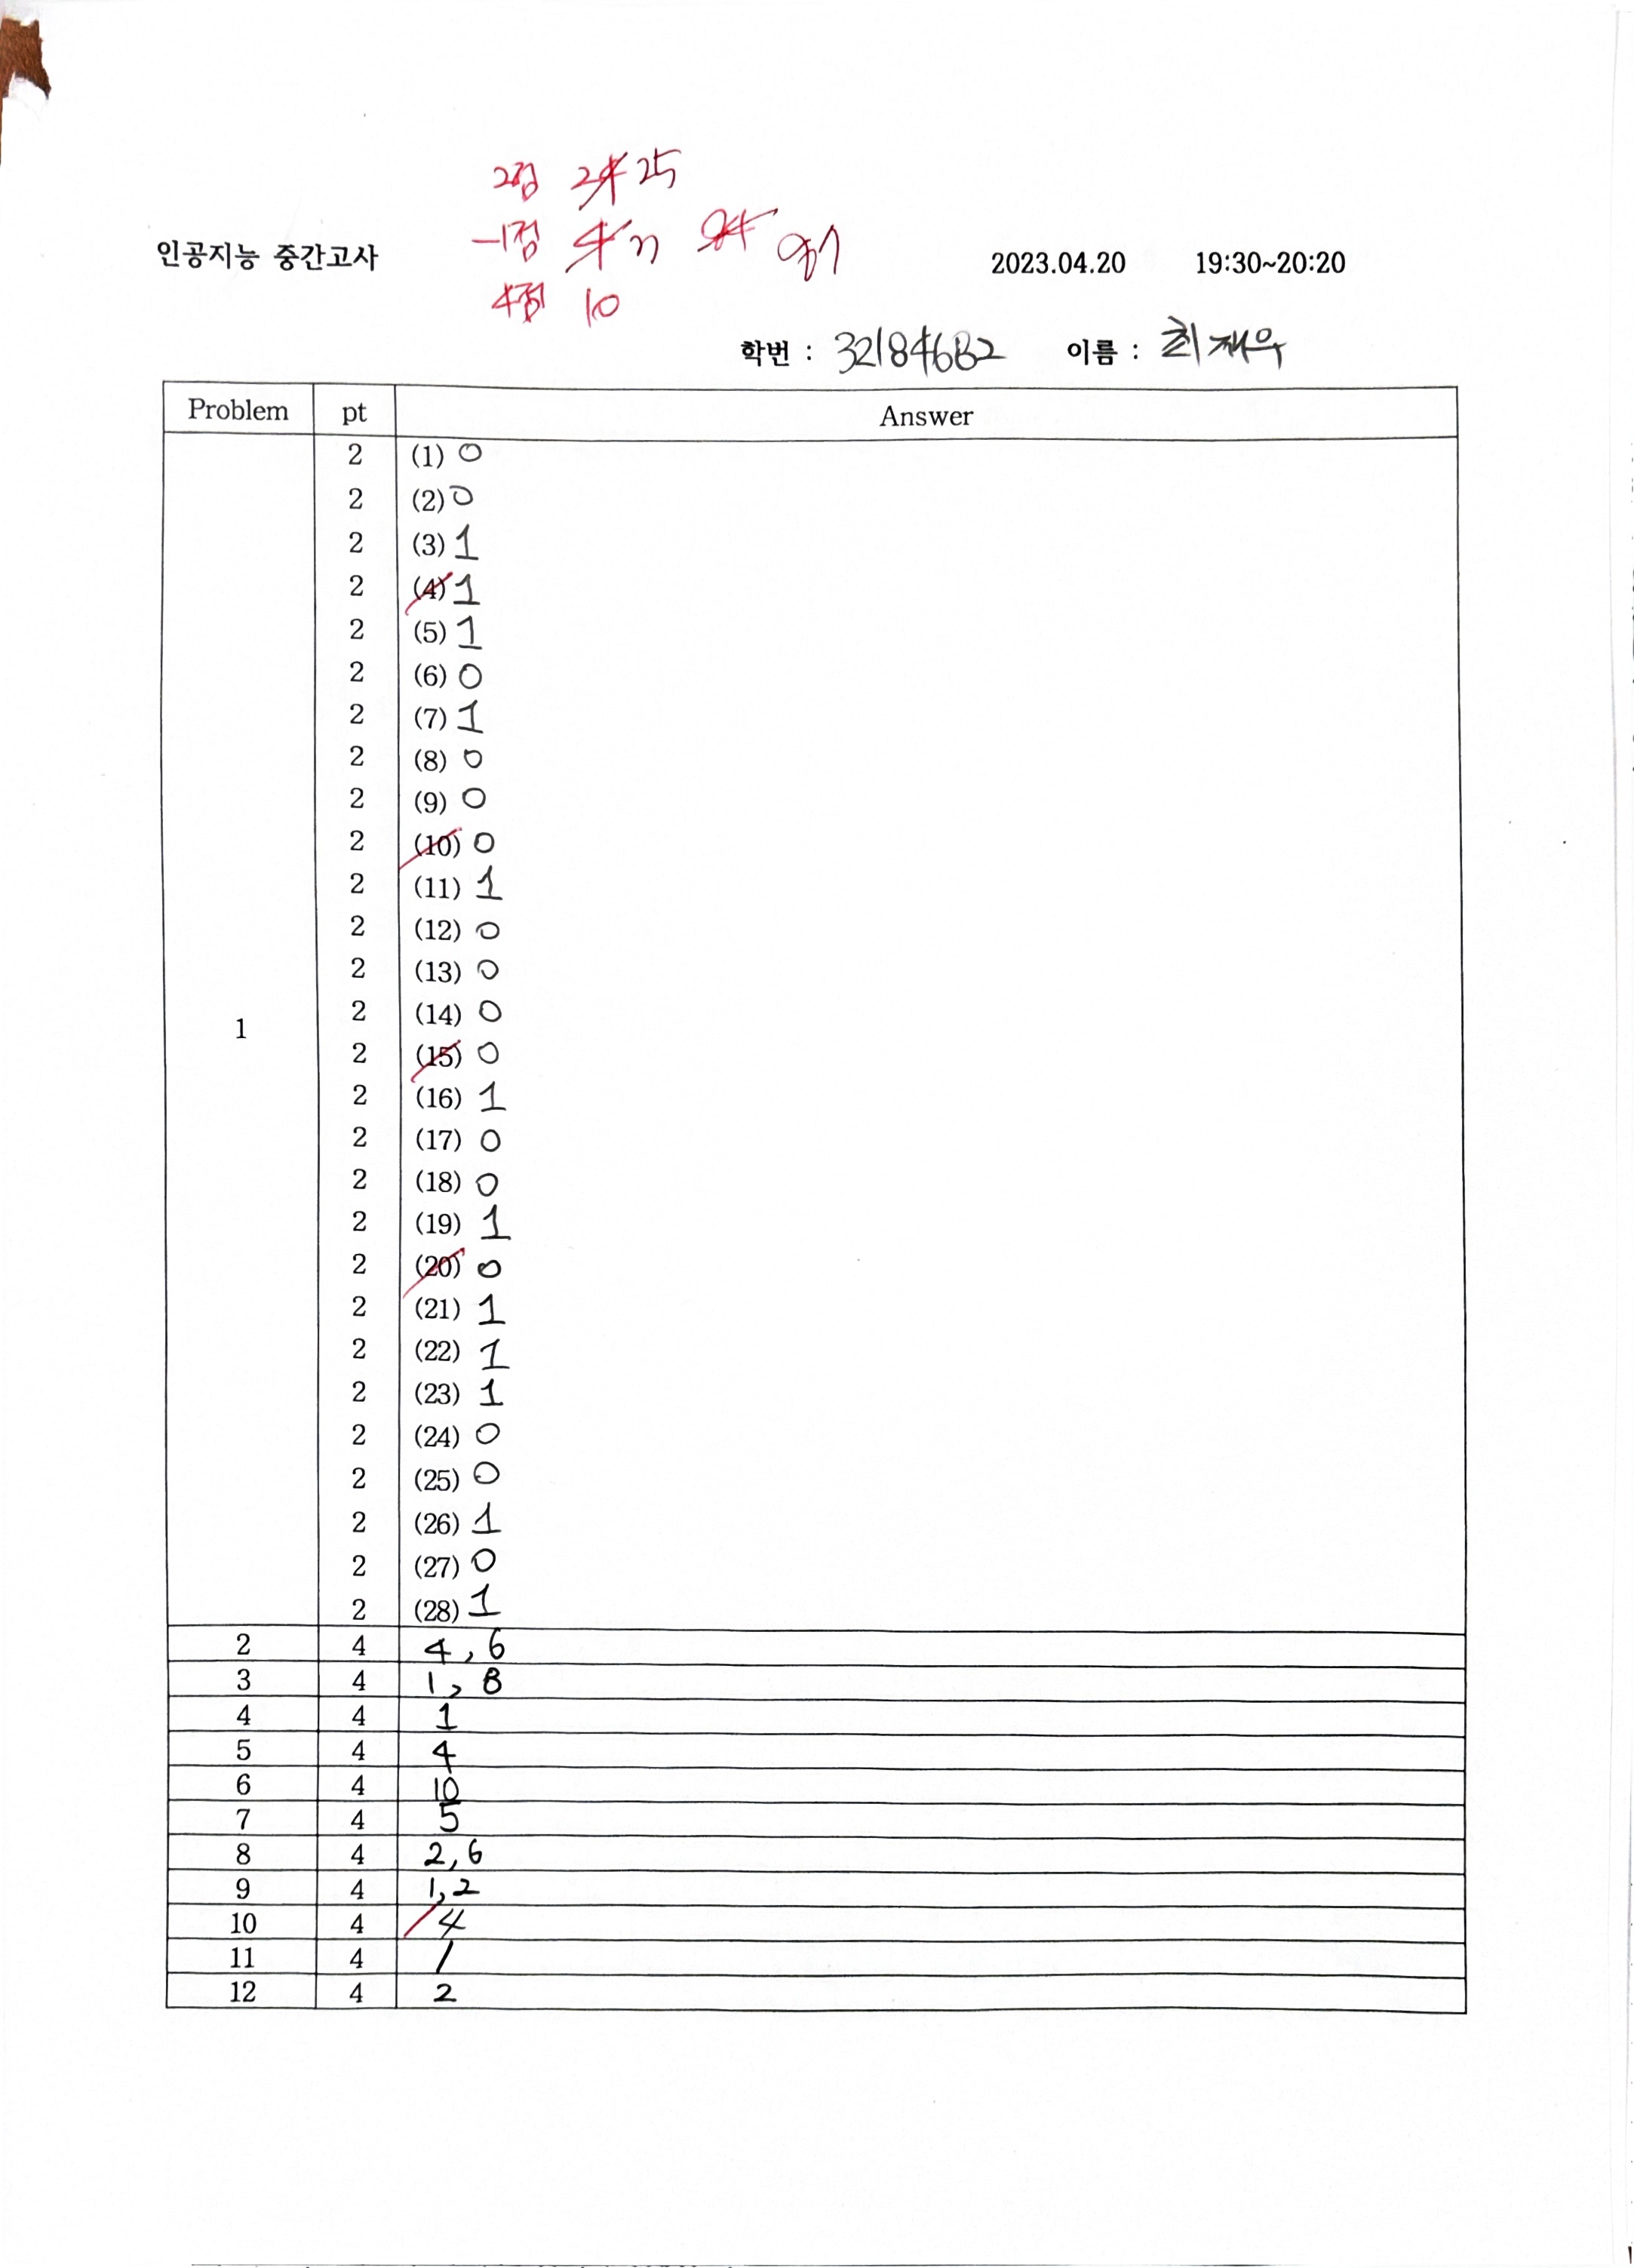 2점 24 25
-1점 4 3 94 97
인공지능 중간고사 2023.04.20 19:30~20:20
4점 10
학번 : 32184682 이름 : 최재우
Problem pt Answer
1
2 (1) 0
2 (2) 0
2 (3) 1
2 (4) 1
2 (5) 1
2 (6) 0
2 (7) 1
2 (8) 0
2 (9) 0
2 (10) 0
2 (11) 1
2 (12) 0
2 (13) 0
2 (14) 0
2 (15) 0
2 (16) 1
2 (17) 0
2 (18) 0
2 (19) 1
2 (20) 0
2 (21) 1
2 (22) 1
2 (23) 1
2 (24) 0
2 (25) 0
2 (26) 1
2 (27) 0
2 (28) 1
2 4 4, 6
3 4 1, 8
4 4 1
5 4 4
6 4 10
7 4 5
8 4 2, 6
9 4 1, 2
10 4 4
11 4 1
12 4 2